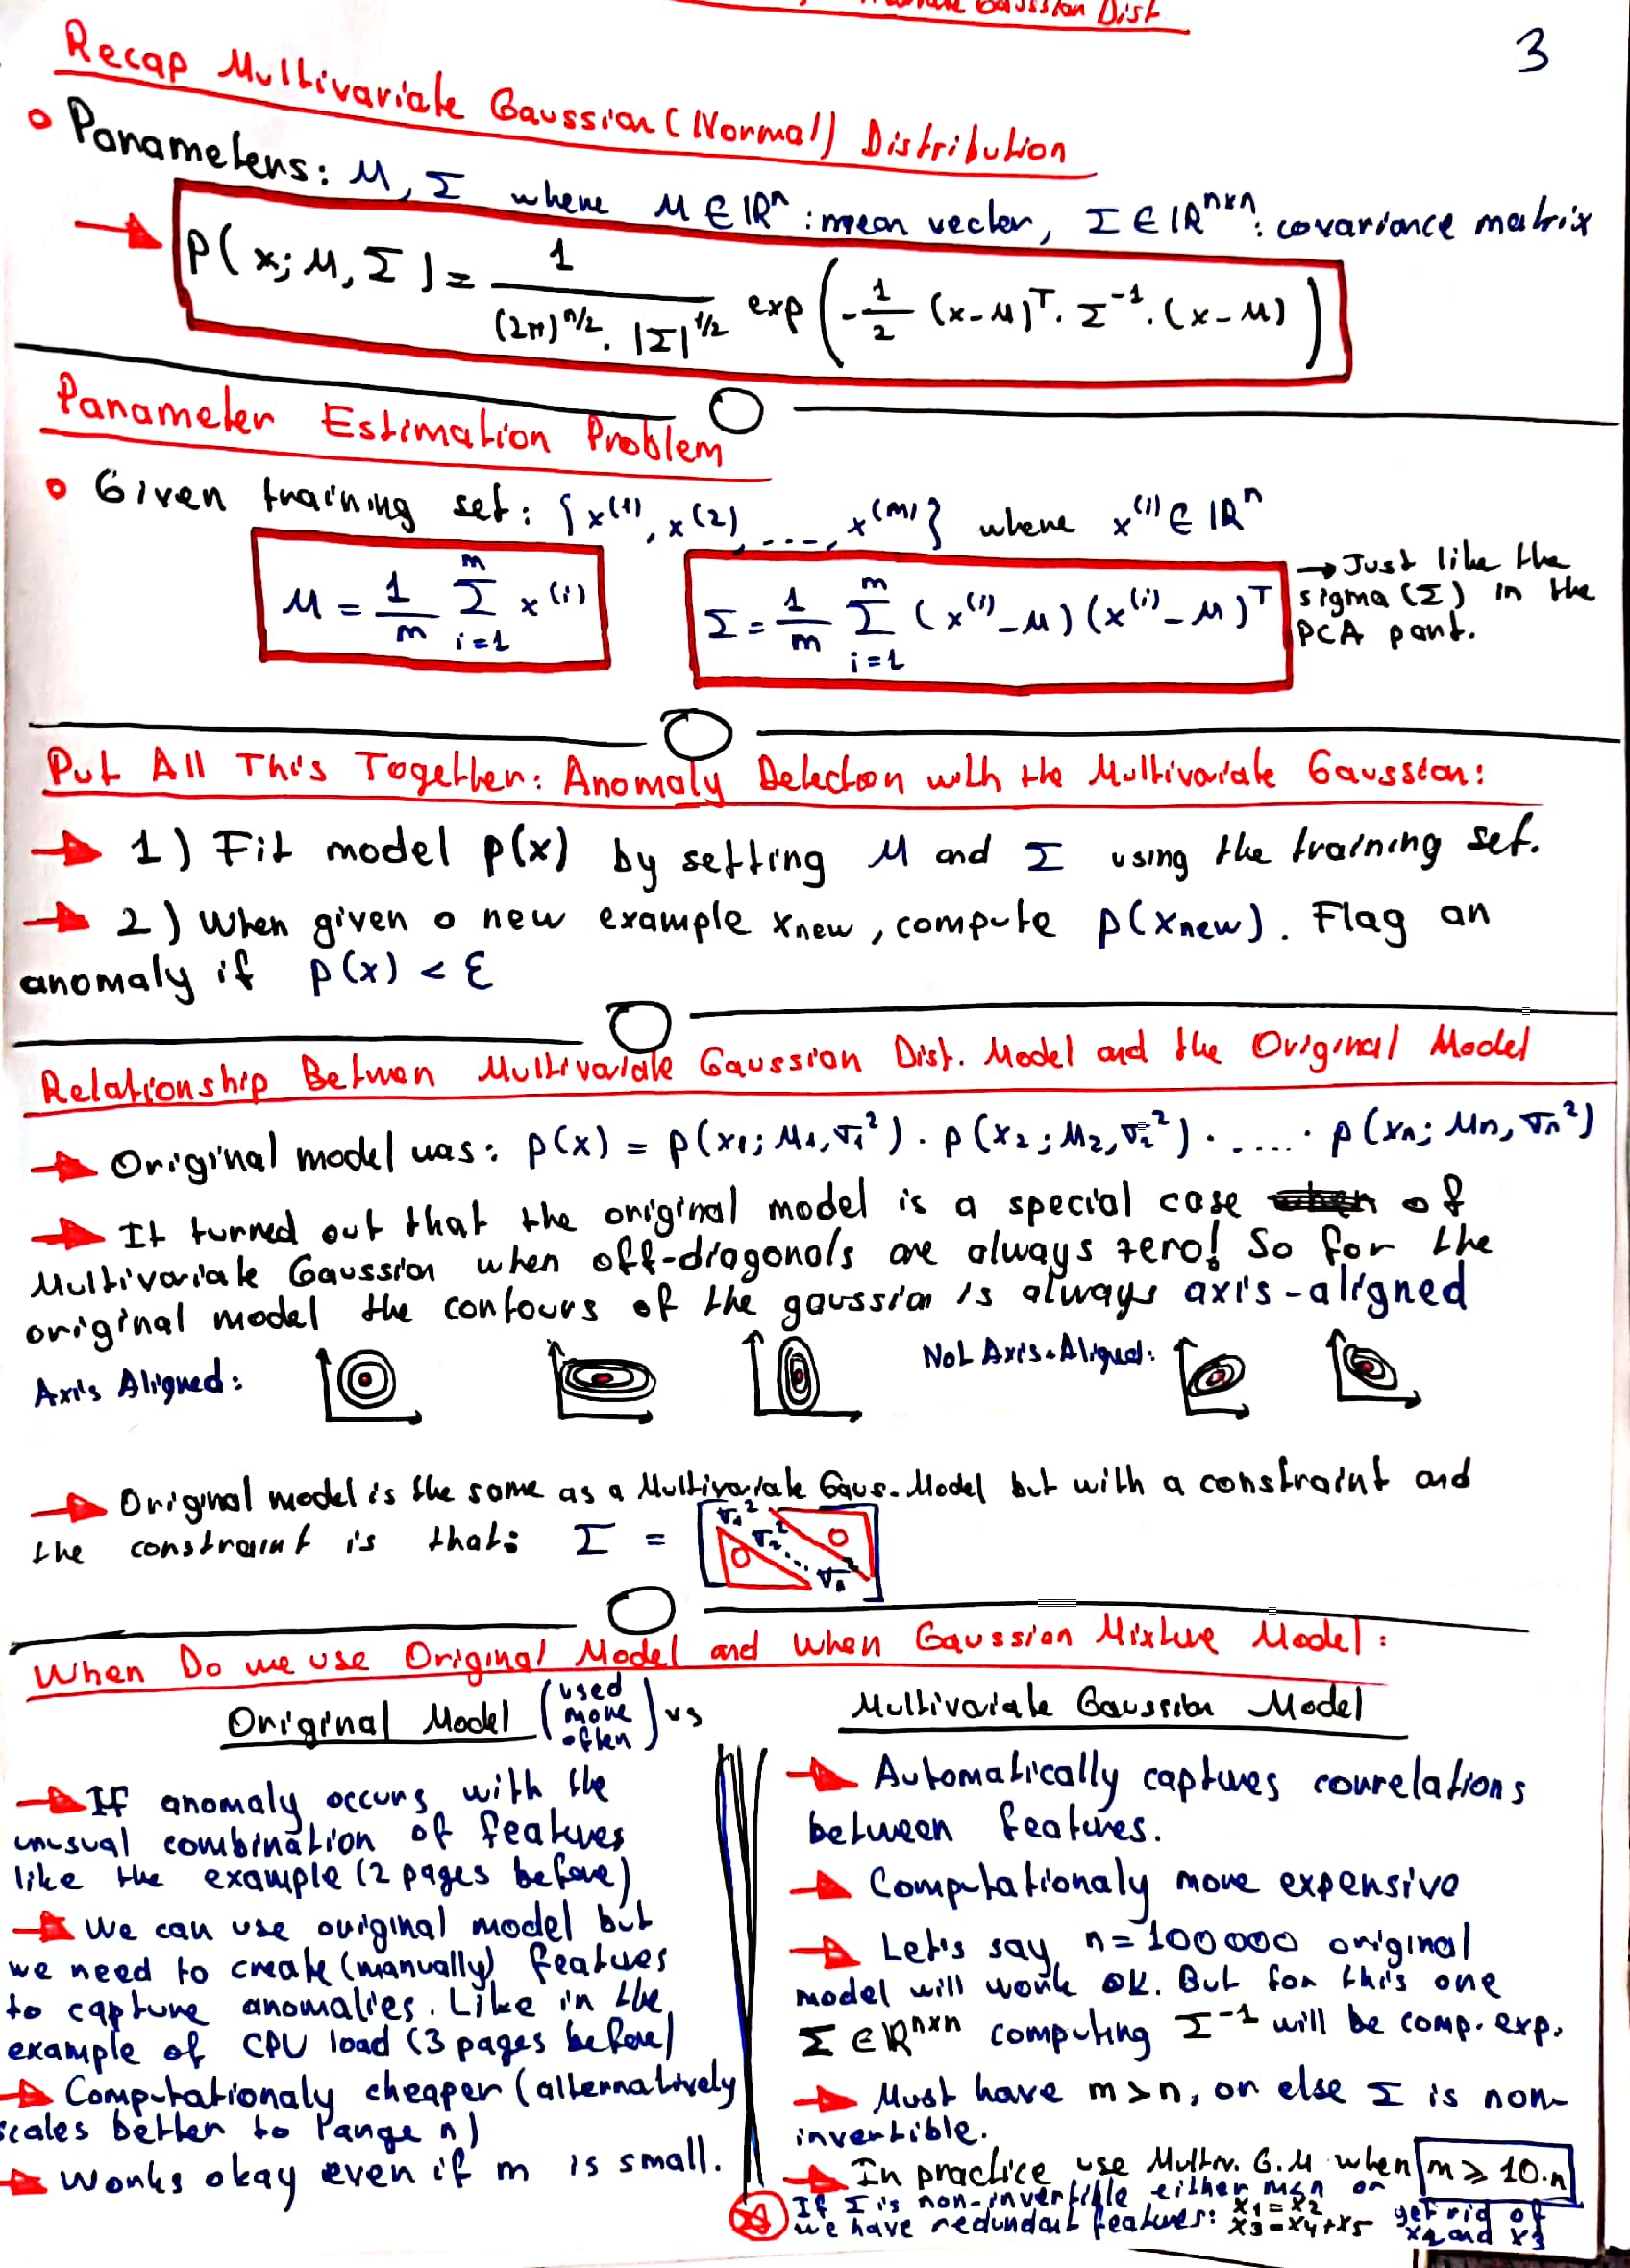 Gaussian Dist
3
Recap Multivariate Gaussian (Normal) Distribution
Parameters: μ, Σ where μ ∈ ℝⁿ : mean vector, Σ ∈ ℝⁿˣⁿ : covariance matrix
p(x; μ, Σ) = 1 / ((2π)^(n/2) . |Σ|^(1/2)) exp(-1/2 (x-μ)ᵀ . Σ⁻¹ . (x-μ))
Parameter Estimation Problem
Given training set: {x⁽¹⁾, x⁽²⁾, ...., x⁽ᵐ⁾} where x⁽ⁱ⁾ ∈ ℝⁿ
μ = 1/m Σ_{i=1}^{m} x⁽ⁱ⁾
Σ = 1/m Σ_{i=1}^{m} (x⁽ⁱ⁾ - μ)(x⁽ⁱ⁾ - μ)ᵀ
→ Just like the
sigma (Σ) in the
PCA part.
Put All This Together: Anomaly Detection with the Multivariate Gaussian:
1) Fit model p(x) by setting μ and Σ using the training set.
2) When given a new example xnew, compute p(xnew). Flag an
anomaly if p(x) < ε
Relationship Betwen Multivariate Gaussian Dist. Model and the Original Model
Original model was: p(x) = p(x₁; μ₁, σ₁²) . p(x₂; μ₂, σ₂²) . .... . p(xₙ; μₙ, σₙ²)
It turned out that the original model is a special case of
Multivariate Gaussian when off-diagonals are always zero! So for the
original model the contours of the gaussian is always axis-aligned
Axis Aligned:
Not Axis-Aligned:
Original model is the same as a Multivariate Gaus. Model but with a constraint and
the constraint is that: Σ =
σ₁² 0
σ₂²
0 ... σₙ²
When Do we use Original Model and when Gaussian Mixture Model:
Original Model (used more often) vs
Multivariate Gaussian Model
If anomaly occurs with the
unusual combination of features
like the example (2 pages before)
We can use original model but
we need to create (manually) features
to capture anomalies. Like in the
example of CPU load (3 pages before)
Computationaly cheaper (alternatively
scales better to large n)
Works okay even if m is small.
Automatically captures correlations
between features.
Computationaly more expensive
Let's say n = 100000 original
model will work OK. But for this one
Σ ∈ ℝⁿˣⁿ computing Σ⁻¹ will be comp. exp.
Must have m > n, or else Σ is non-
invertible.
In practice use Multiv. G.M when m ≥ 10.n
If Σ is non-invertible either m≤n or
we have redundant features: x₁ = x₂
x₃ = x₄ + x₅
get rid of
x₂ and x₃